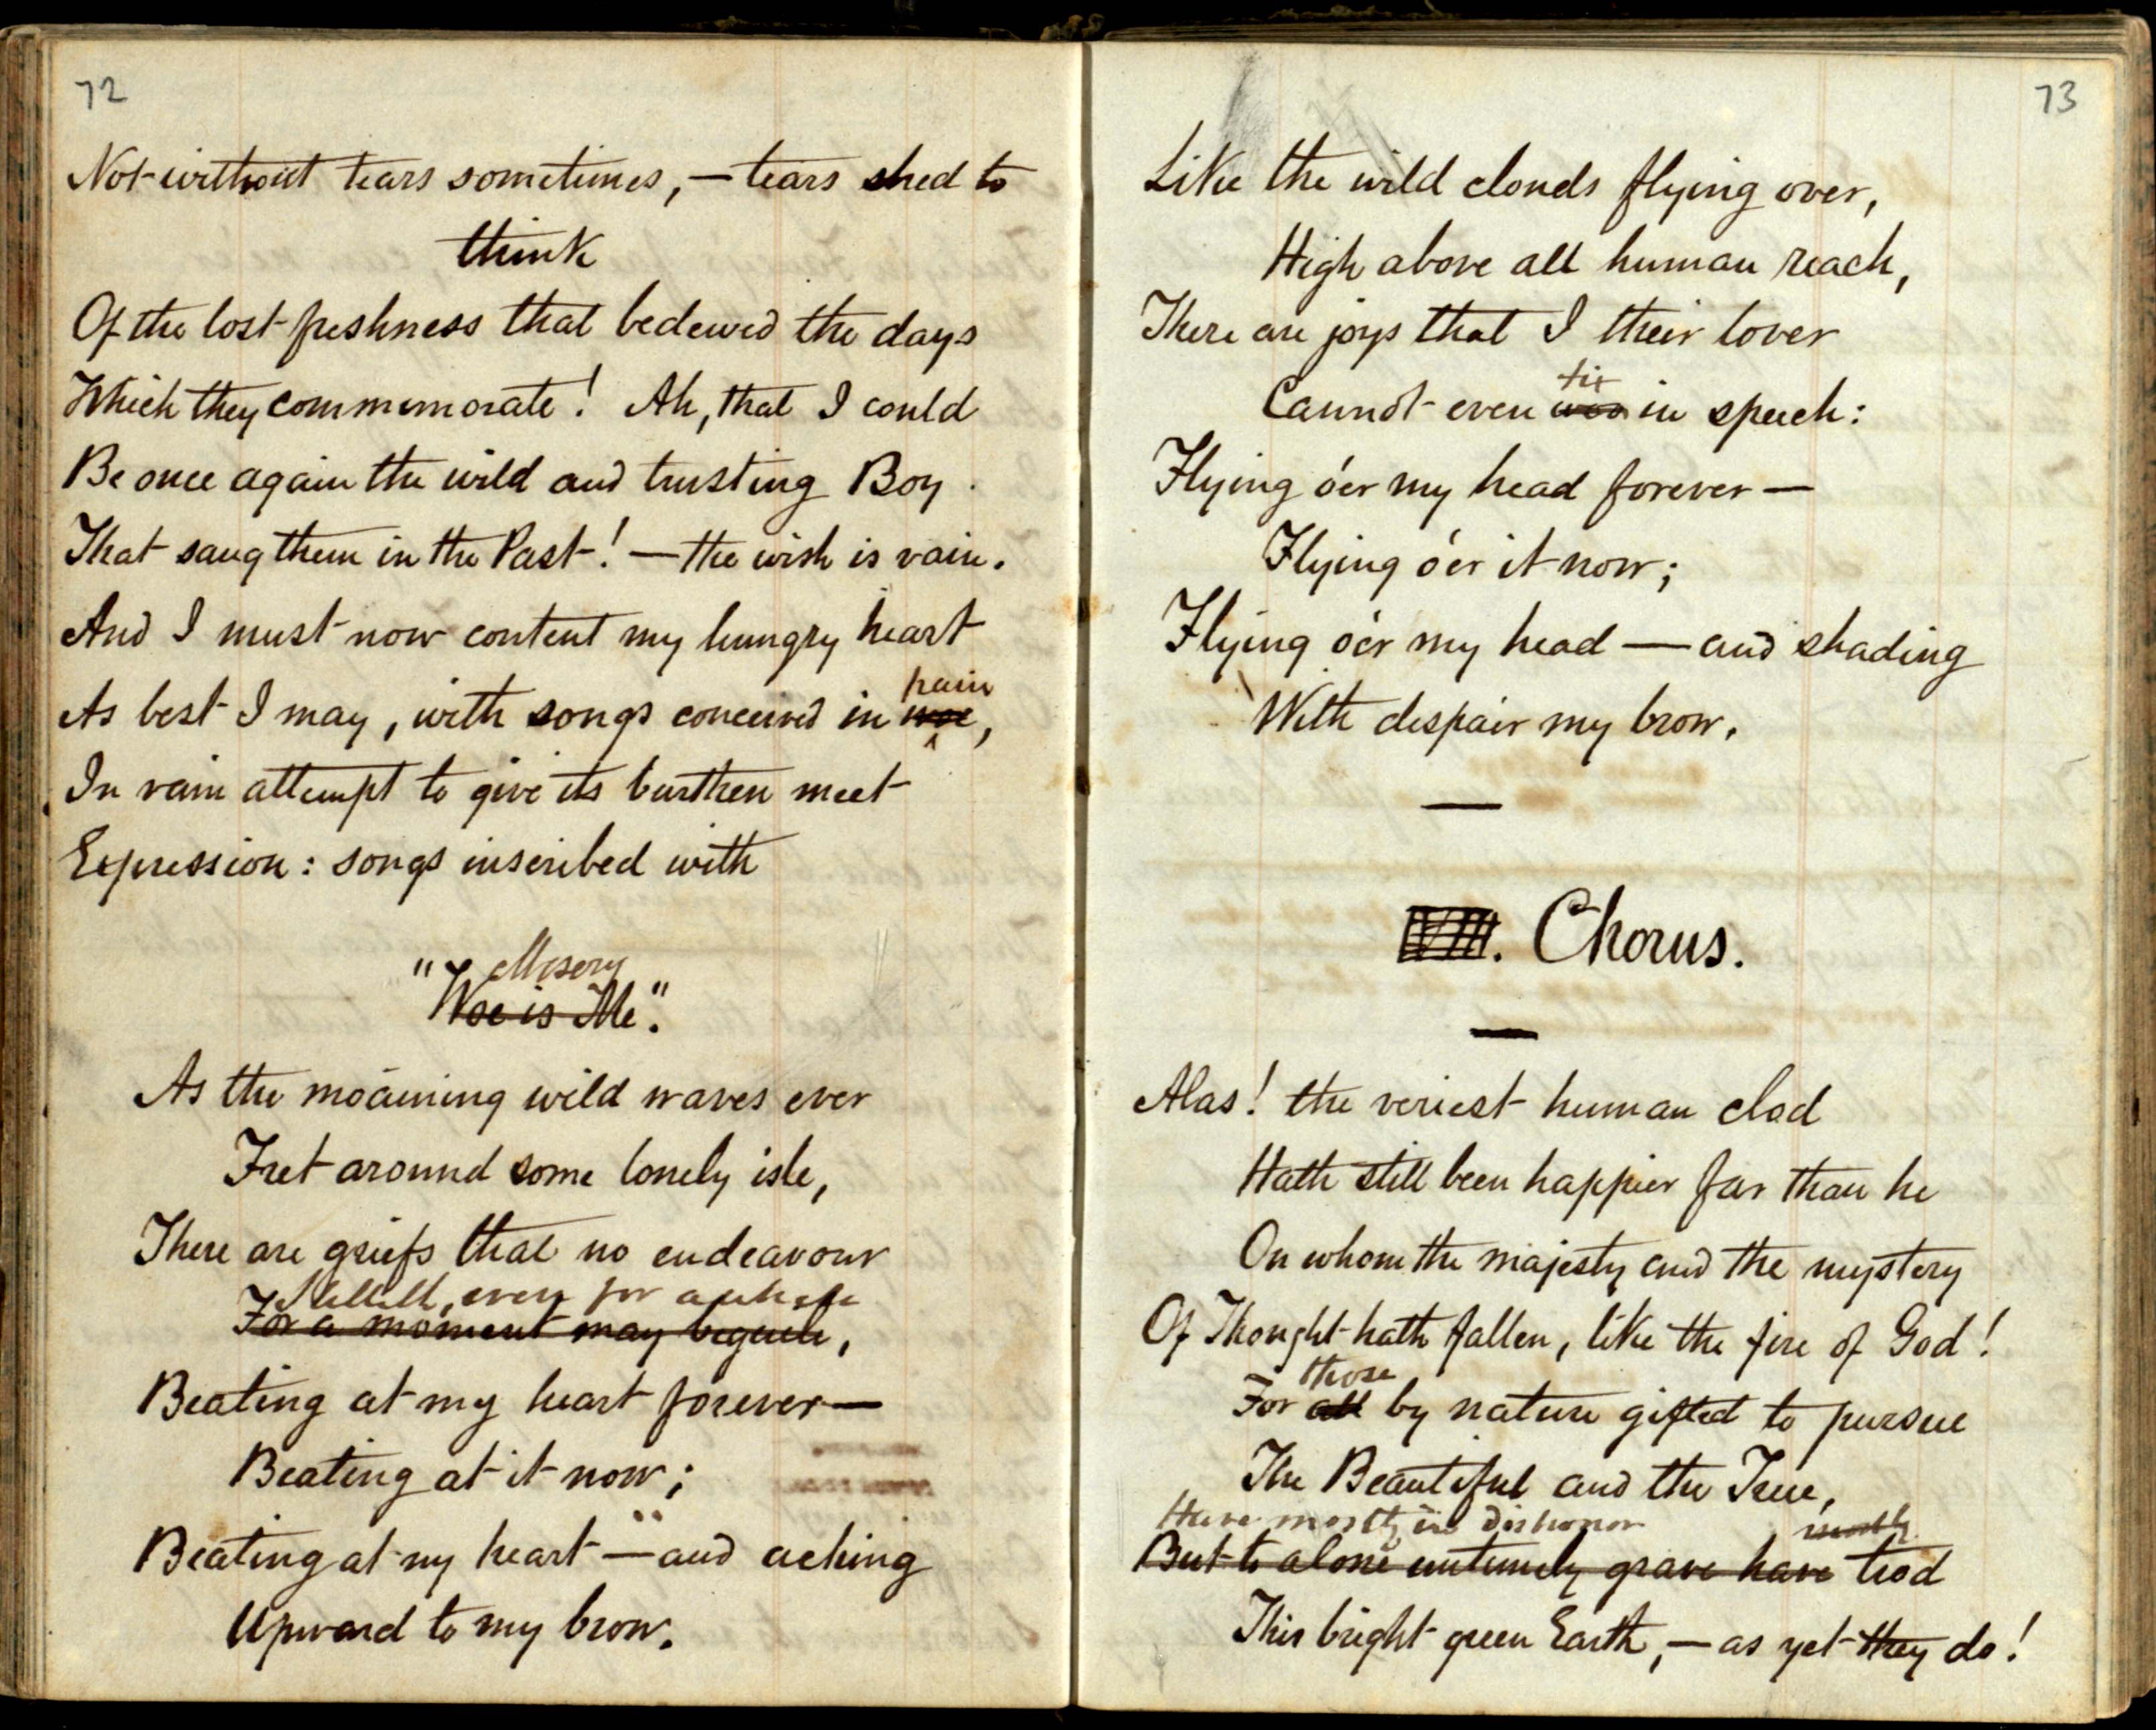 72
Not without tears sometimes, — tears shed to
think
Of the lost freshness that bedewed the days
Which they commemorate! Ah, that I could
Be once again the wild and trusting Boy
That sang them in the Past! — the wish is vain.
And I must now content my hungry heart
pain
As best I may, with songs conceived in woe,
In vain attempt to give its burthen meet
Expression: songs inscribed with
Misery
"Woe is Me."
As the moaning wild waves ever
Fret around some lonely isle,
There are griefs that no endeavour
even for a while
For a moment may beguile,
Beating at my heart forever—
Beating at it now;
Beating at my heart — and aching
Upward to my brow.
73
Like the wild clouds flying over,
High above all human reach,
There are joys that I their lover
fix
Cannot even in speech:
Flying o'er my head forever—
Flying o'er it now;
Flying o'er my head — and shading
With despair my brow.
VIII. Chorus.
Alas! the veriest human clod
Hath still been happier far than he
On whom the majesty and the mystery
Of Thought hath fallen, like the fire of God!
those
For all by nature gifted to pursue
The Beautiful and the True,
Have mostly in dishonor mostly
But to a lone untimely grave have trod
This bright green Earth, — as yet they do!